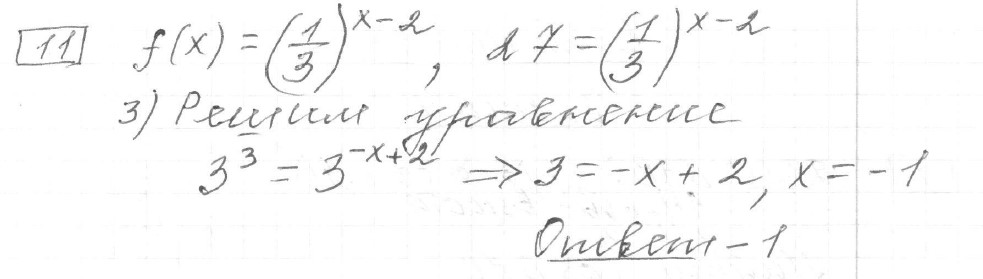 11 f(x) = (1/3)^{x-2}, 27 = (1/3)^{x-2}
3) Решим уравнение
3^3 = 3^{-x+2} ⇒ 3 = -x + 2, x = -1
Ответ -1